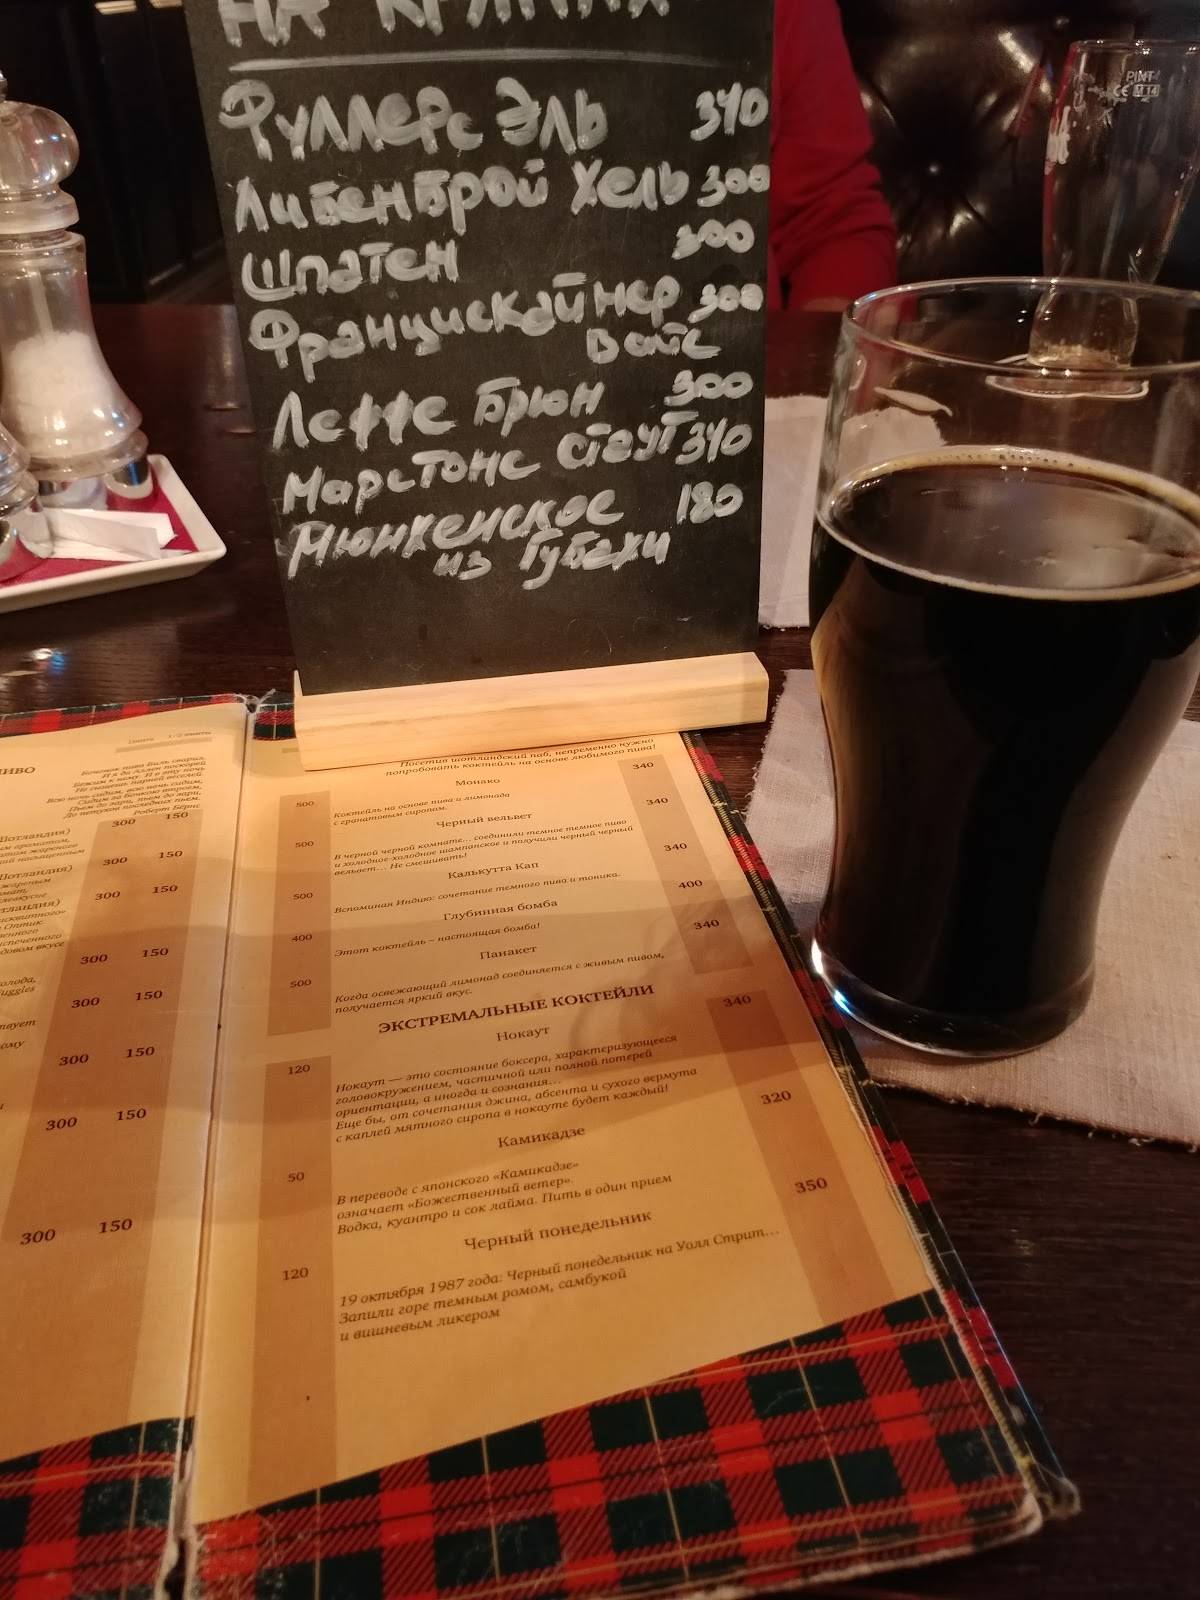 НА КРАНАХ
Фуллерс Эль 340
Либенброй Хель 300
Шпатен 300
Францисканнер 300
Вайс
Леффе Брюн 300
Марстонс Стаут 340
Мюнхенское 180
из Губахи
PINT
CE M14
пинта 1/2 пинты
ПИВО
Бочонок пива Виль сварил,
И я да Аллен поскорей
Бежим к нему. И в эту ночь
Не сыщешь парней веселей.
Всю ночь сидим, всю ночь сидим,
Сидим за бочкою втроем,
Пьем до зари, пьем до зари,
До петухов последних пьем.
Роберт Бёрнс
300 150
300 150
300 150
300 150
300 150
300 150
300 150
300 150
Посетив шотландский паб, непременно нужно
попробовать коктейль на основе любимого пива!
Монако
500 340
Коктейль на основе пива и лимонада
с гранатовым сиропом.
Черный вельвет
500 340
В черной черной комнате... соединили темное темное пиво
и холодное-холодное шампанское и получили черный черный
вельвет... Не смешивать!
Калькутта Кап
500 340
Вспоминая Индию: сочетание темного пива и тоника.
Глубинная бомба
400 400
Этот коктейль – настоящая бомба!
Панакет
500 340
Когда освежающий лимонад соединяется с живым пивом,
получается яркий вкус.
ЭКСТРЕМАЛЬНЫЕ КОКТЕЙЛИ
Нокаут
120 340
Нокаут — это состояние боксера, характеризующееся
головокружением, частичной или полной потерей
ориентации, а иногда и сознания...
Еще бы, от сочетания джина, абсента и сухого вермута
с каплей мятного сиропа в нокауте будет каждый!
Камикадзе
50 320
В переводе с японского «Камикадзе»
означает «Божественный ветер».
Водка, куантро и сок лайма. Пить в один прием
Черный понедельник
120 350
19 октября 1987 года: Черный понедельник на Уолл Стрит...
Запили горе темным ромом, самбукой
и вишневым ликером